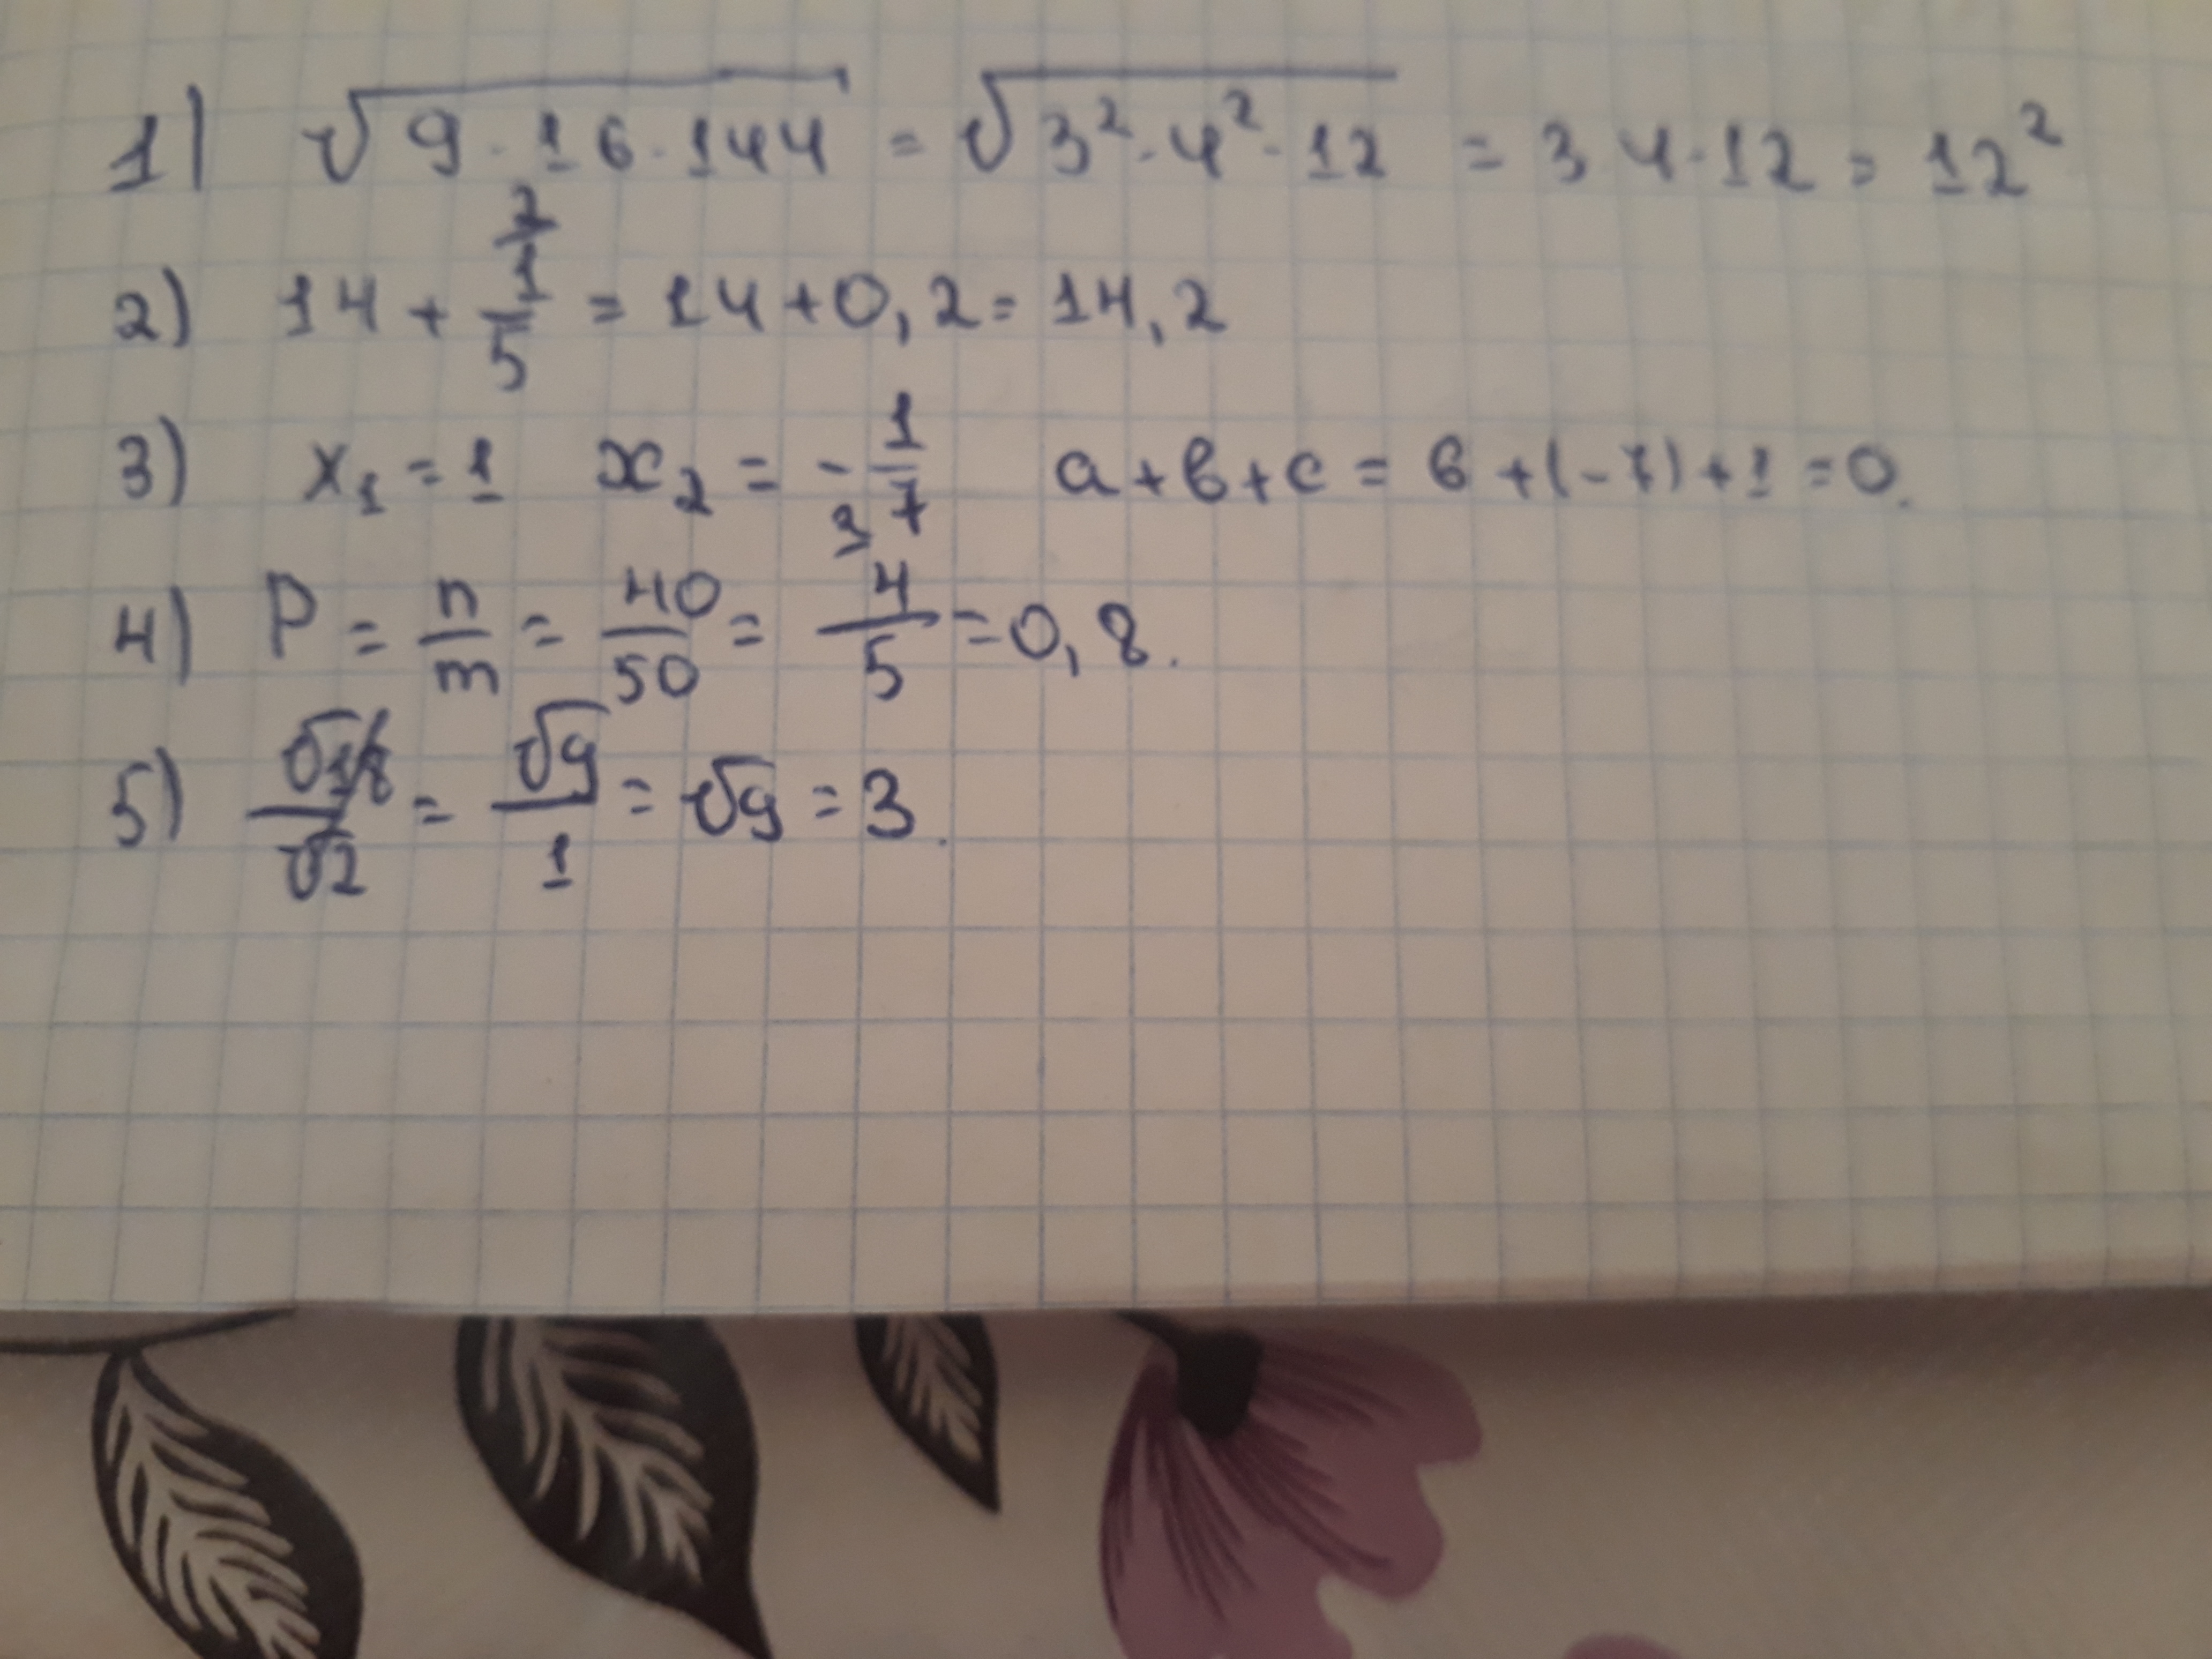 1) √9·16·144 = √3²·4²·12 = 3 4·12 = 12²
2) 14 + 1/5 = 14+0,2 = 14,2
3) x₁ = 1 x₂ = -1/7 a+b+c = 6+(-7)+1 = 0.
4) P = n/m = 40/50 = 4/5 = 0,8.
5) √18/√2 = √9/1 = √9 = 3.